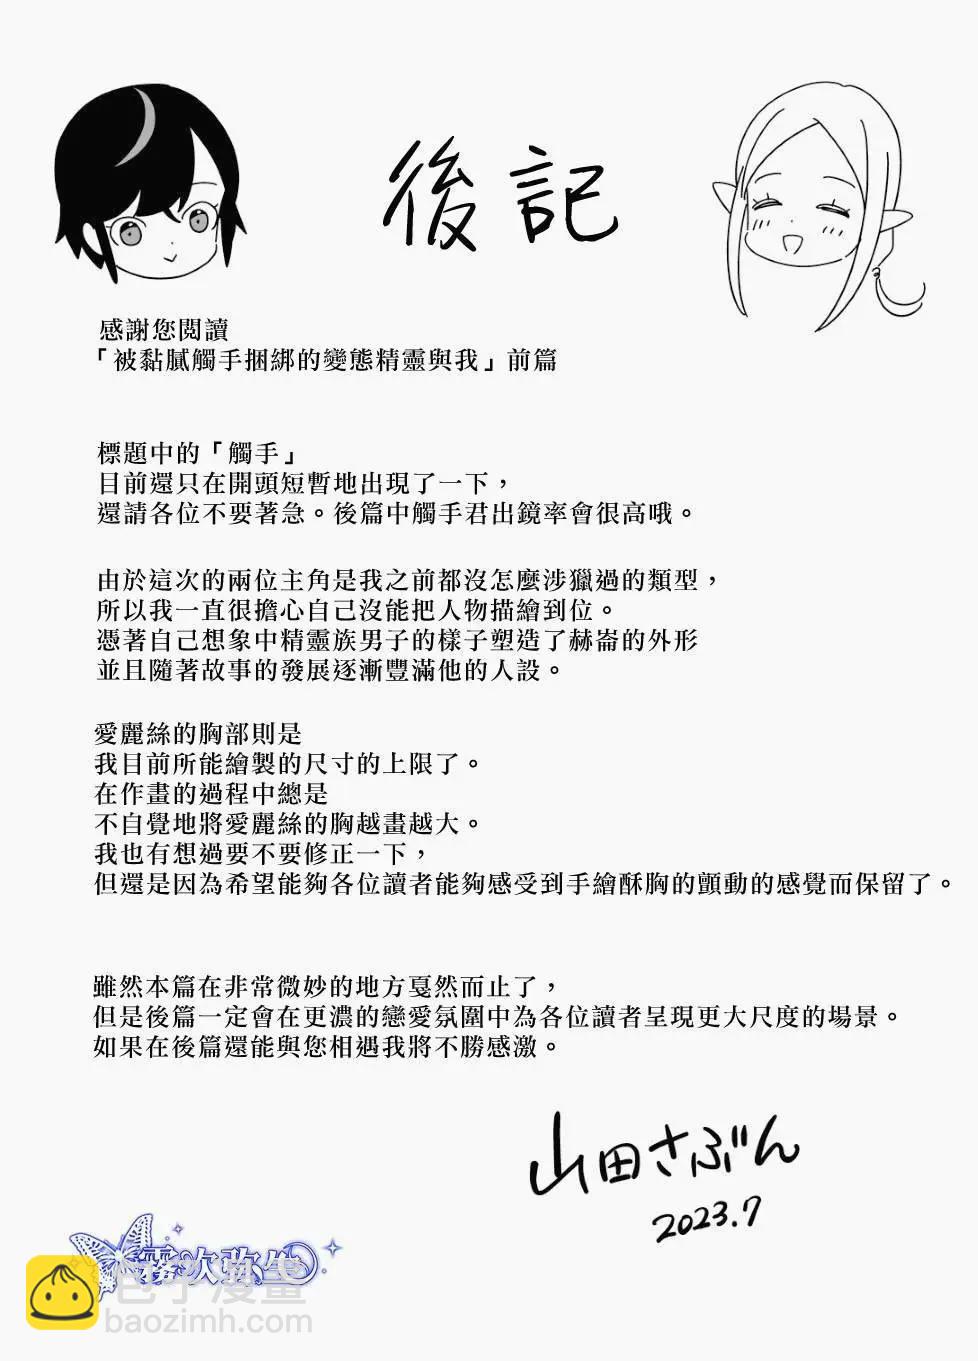 後記
感謝您閱讀
「被黏膩觸手捆綁的變態精靈與我」前篇
標題中的「觸手」
目前還只在開頭短暫地出現了一下，
還請各位不要著急。後篇中觸手君出鏡率會很高哦。
由於這次的兩位主角是我之前都沒怎麼涉獵過的類型，
所以我一直很擔心自己沒能把人物描繪到位。
憑著自己想象中精靈族男子的樣子塑造了赫崙的外形
並且隨著故事的發展逐漸豐滿他的人設。
愛麗絲的胸部則是
我目前所能繪製的尺寸的上限了。
在作畫的過程中總是
不自覺地將愛麗絲的胸越畫越大。
我也有想過要不要修正一下，
但還是因為希望能夠各位讀者能夠感受到手繪酥胸的顫動的感覺而保留了。
雖然本篇在非常微妙的地方戛然而止了，
但是後篇一定會在更濃的戀愛氛圍中為各位讀者呈現更大尺度的場景。
如果在後篇還能與您相遇我將不勝感激。
山田さぶん
2023.7
霧吹弥生
包子漫畫
baozimh.com